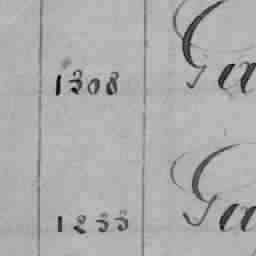 1308 Ga
1233 Ga